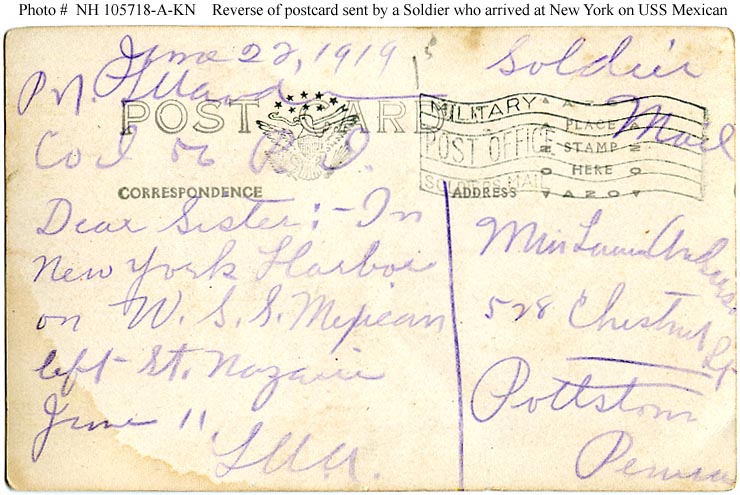 Photo # NH 105718-A-KN Reverse of postcard sent by a Soldier who arrived at New York on USS Mexican
June 22, 1919
Soldier
Mail
POST CARD
MILITARY
POST OFFICE
SOLDIERS MAIL
PLACE
STAMP
HERE
AZO
CORRESPONDENCE
ADDRESS
Dear Sister:- In
New York Harbor
on W. S. S. Mexican
left St. Nazaire
June 11
528 Chestnut St
Pottstown
Penna